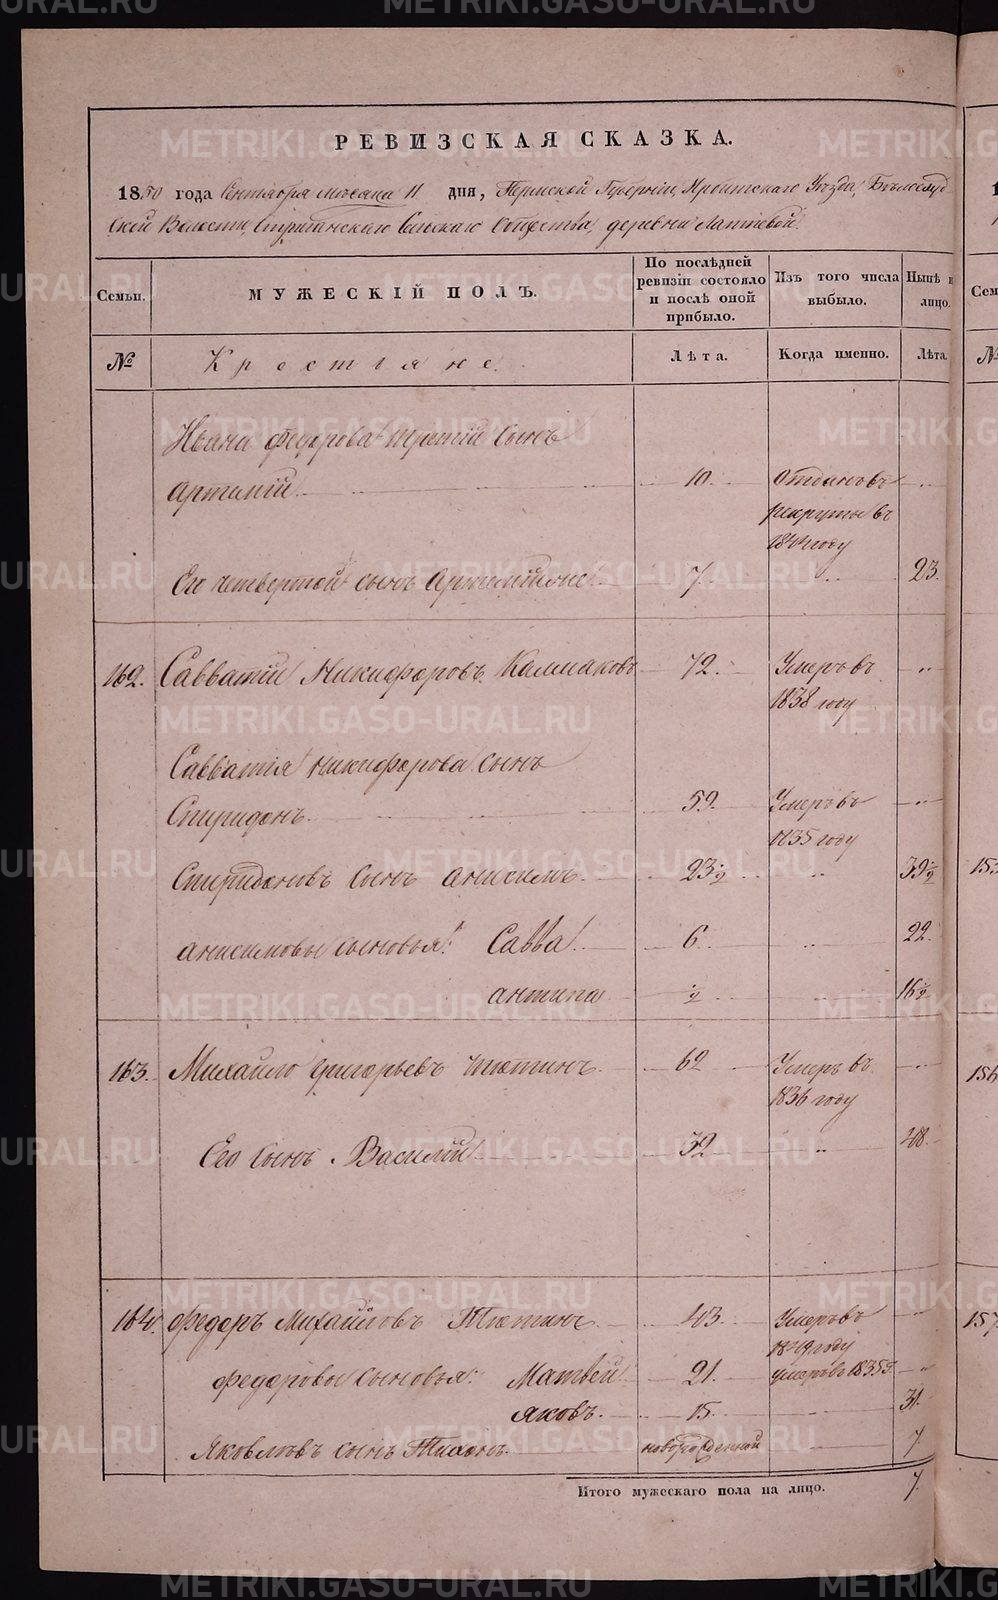 METRIKI.GASO-URAL.RU
РЕВИЗСКАЯ СКАЗКА.
1850 года Сентября месяца 11 дня, Пермской Губернии, Ирбитскаго Уезда,
ской Волости, Сельскаго Общества, деревни
Семьи.
МУЖЕСКІЙ ПОЛЪ.
По послѣдней ревизіи состояло и послѣ оной прибыло.
Изъ того числа выбыло.
Нынѣ на лицо.
№
Крестьяне.
Лѣта.
Когда именно.
Лѣта.
Ивана Федорова третій сынъ
Артемій 10. Отданъ въ
рекруты въ
1844 году
Его четвертой сынъ 7. 23.
162. Савватій Никифоровъ 72. Умеръ въ
1838 году
Савватія Никифорова сынъ
Спиридонъ. 59. Умеръ въ
1835 году
Спиридоновъ сынъ Анисимъ. 23½ 39½
Анисимовы сыновья: Савва 6. 22.
Антипа ½ 16½
163. Михайло Григорьевъ Тютинъ. 62 Умеръ въ
1836 году
Его сынъ Василій 32 48.
164. Федоръ Михайловъ Тютинъ 43. Умеръ въ
1849 году
Федоровы сыновья: Матвей 21. умеръ в 1835 г
Яковъ. 15. 31.
Яковлевъ сынъ Тихонъ. новорожденной 7.
Итого мужескаго пола на лицо. 7.